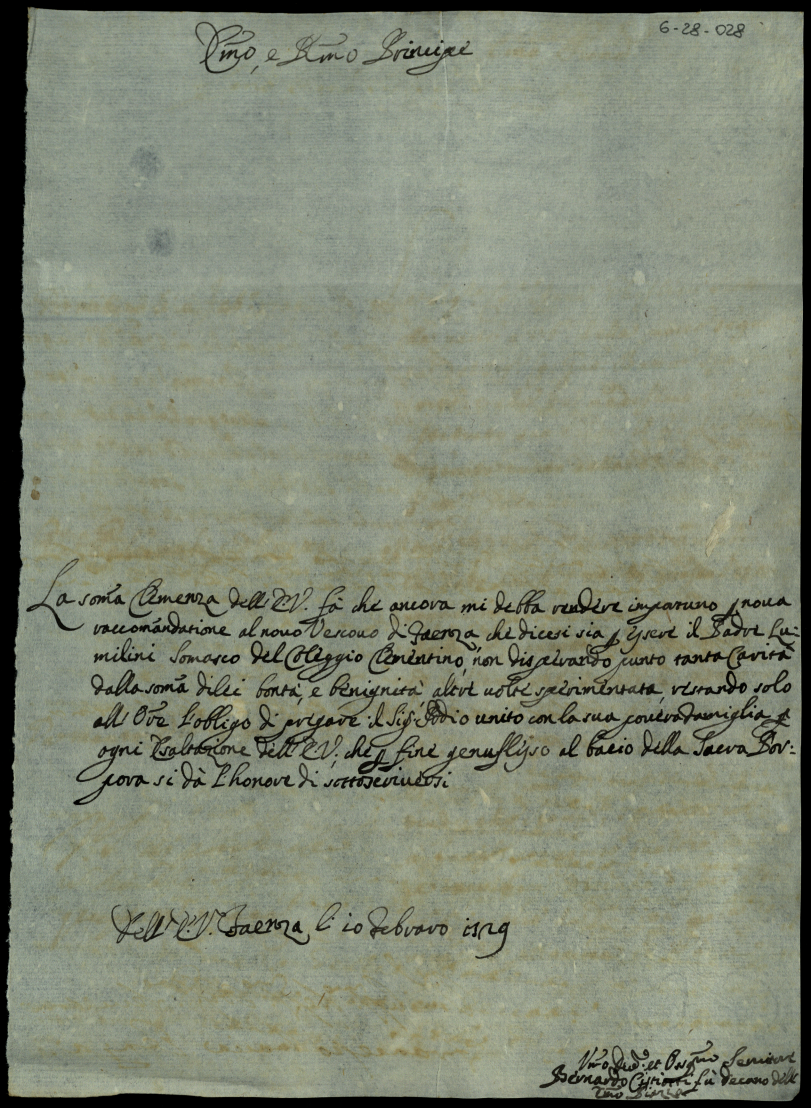 6-28-028
Emo, e Rmo Principe
La somā Clemenza dell' E.V. fà che ancora mi debba rendere importuno p nova
raccomandatione al novo Vescouo di Faenza, che dicesi sia p essere il Padre Lu-
milini Somasco del Coleggio Clementino, non disperando punto tanta Carità
dalla somā di lei bontà, e benignità altre uolte sperimentata, restando solo
all' Ore l'obligo di pregare il Sig.r Iddio unito con la sua povera famiglia p
ogni Esaltazione dell' E.V., che p fine genuflesso al bacio della Sacra Por-
pora si dà l'honore di sottoscriversi
Dell' E.V. Faenza li 10 Febraro 1729
Vmo Deuo. et Ossmo Seruitore
Bernardo fù decano dell